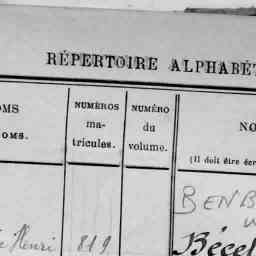 RÉPERTOIRE ALPHABÉT
OMS
OMS.
NUMÉROS
ma-
tricules.
NUMÉRO
du
volume.
NO
(Il doit être écr
BENB
Henri 819
Bécel